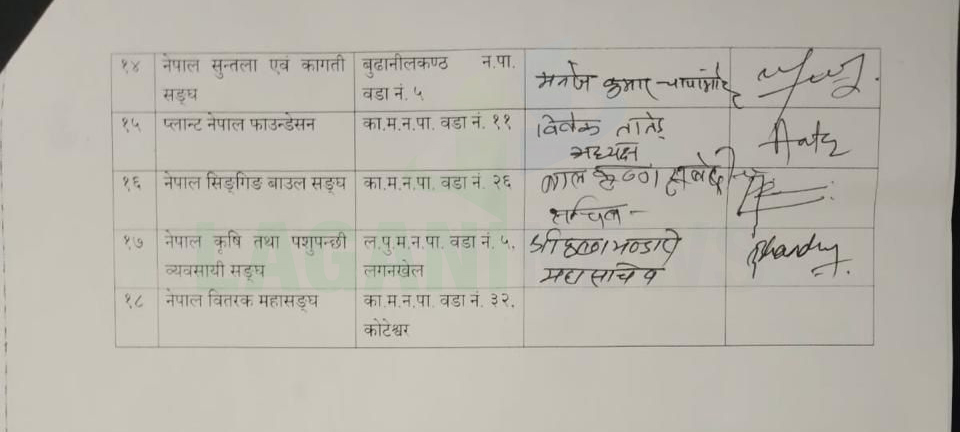 १४ नेपाल सुन्तला एवं कागती बुढानीलकण्ठ न.पा.
सङ्घ वडा नं. ५ मनोज कुमार
१५ प्लान्ट नेपाल फाउन्डेसन का.म.न.पा. वडा नं. ११ विवेक तातेड
अध्यक्ष
१६ नेपाल सिङ्गिङ बाउल सङ्घ का.म.न.पा. वडा नं. २६ लाल कृष्ण
सचिव -
१७ नेपाल कृषि तथा पशुपन्छी ल.पु.म.न.पा. वडा नं. ५, श्री कृष्ण भण्डारी
व्यवसायी सङ्घ लगनखेल महासचिव
१८ नेपाल वितरक महासङ्घ का.म.न.पा. वडा नं. ३२,
कोटेश्वर